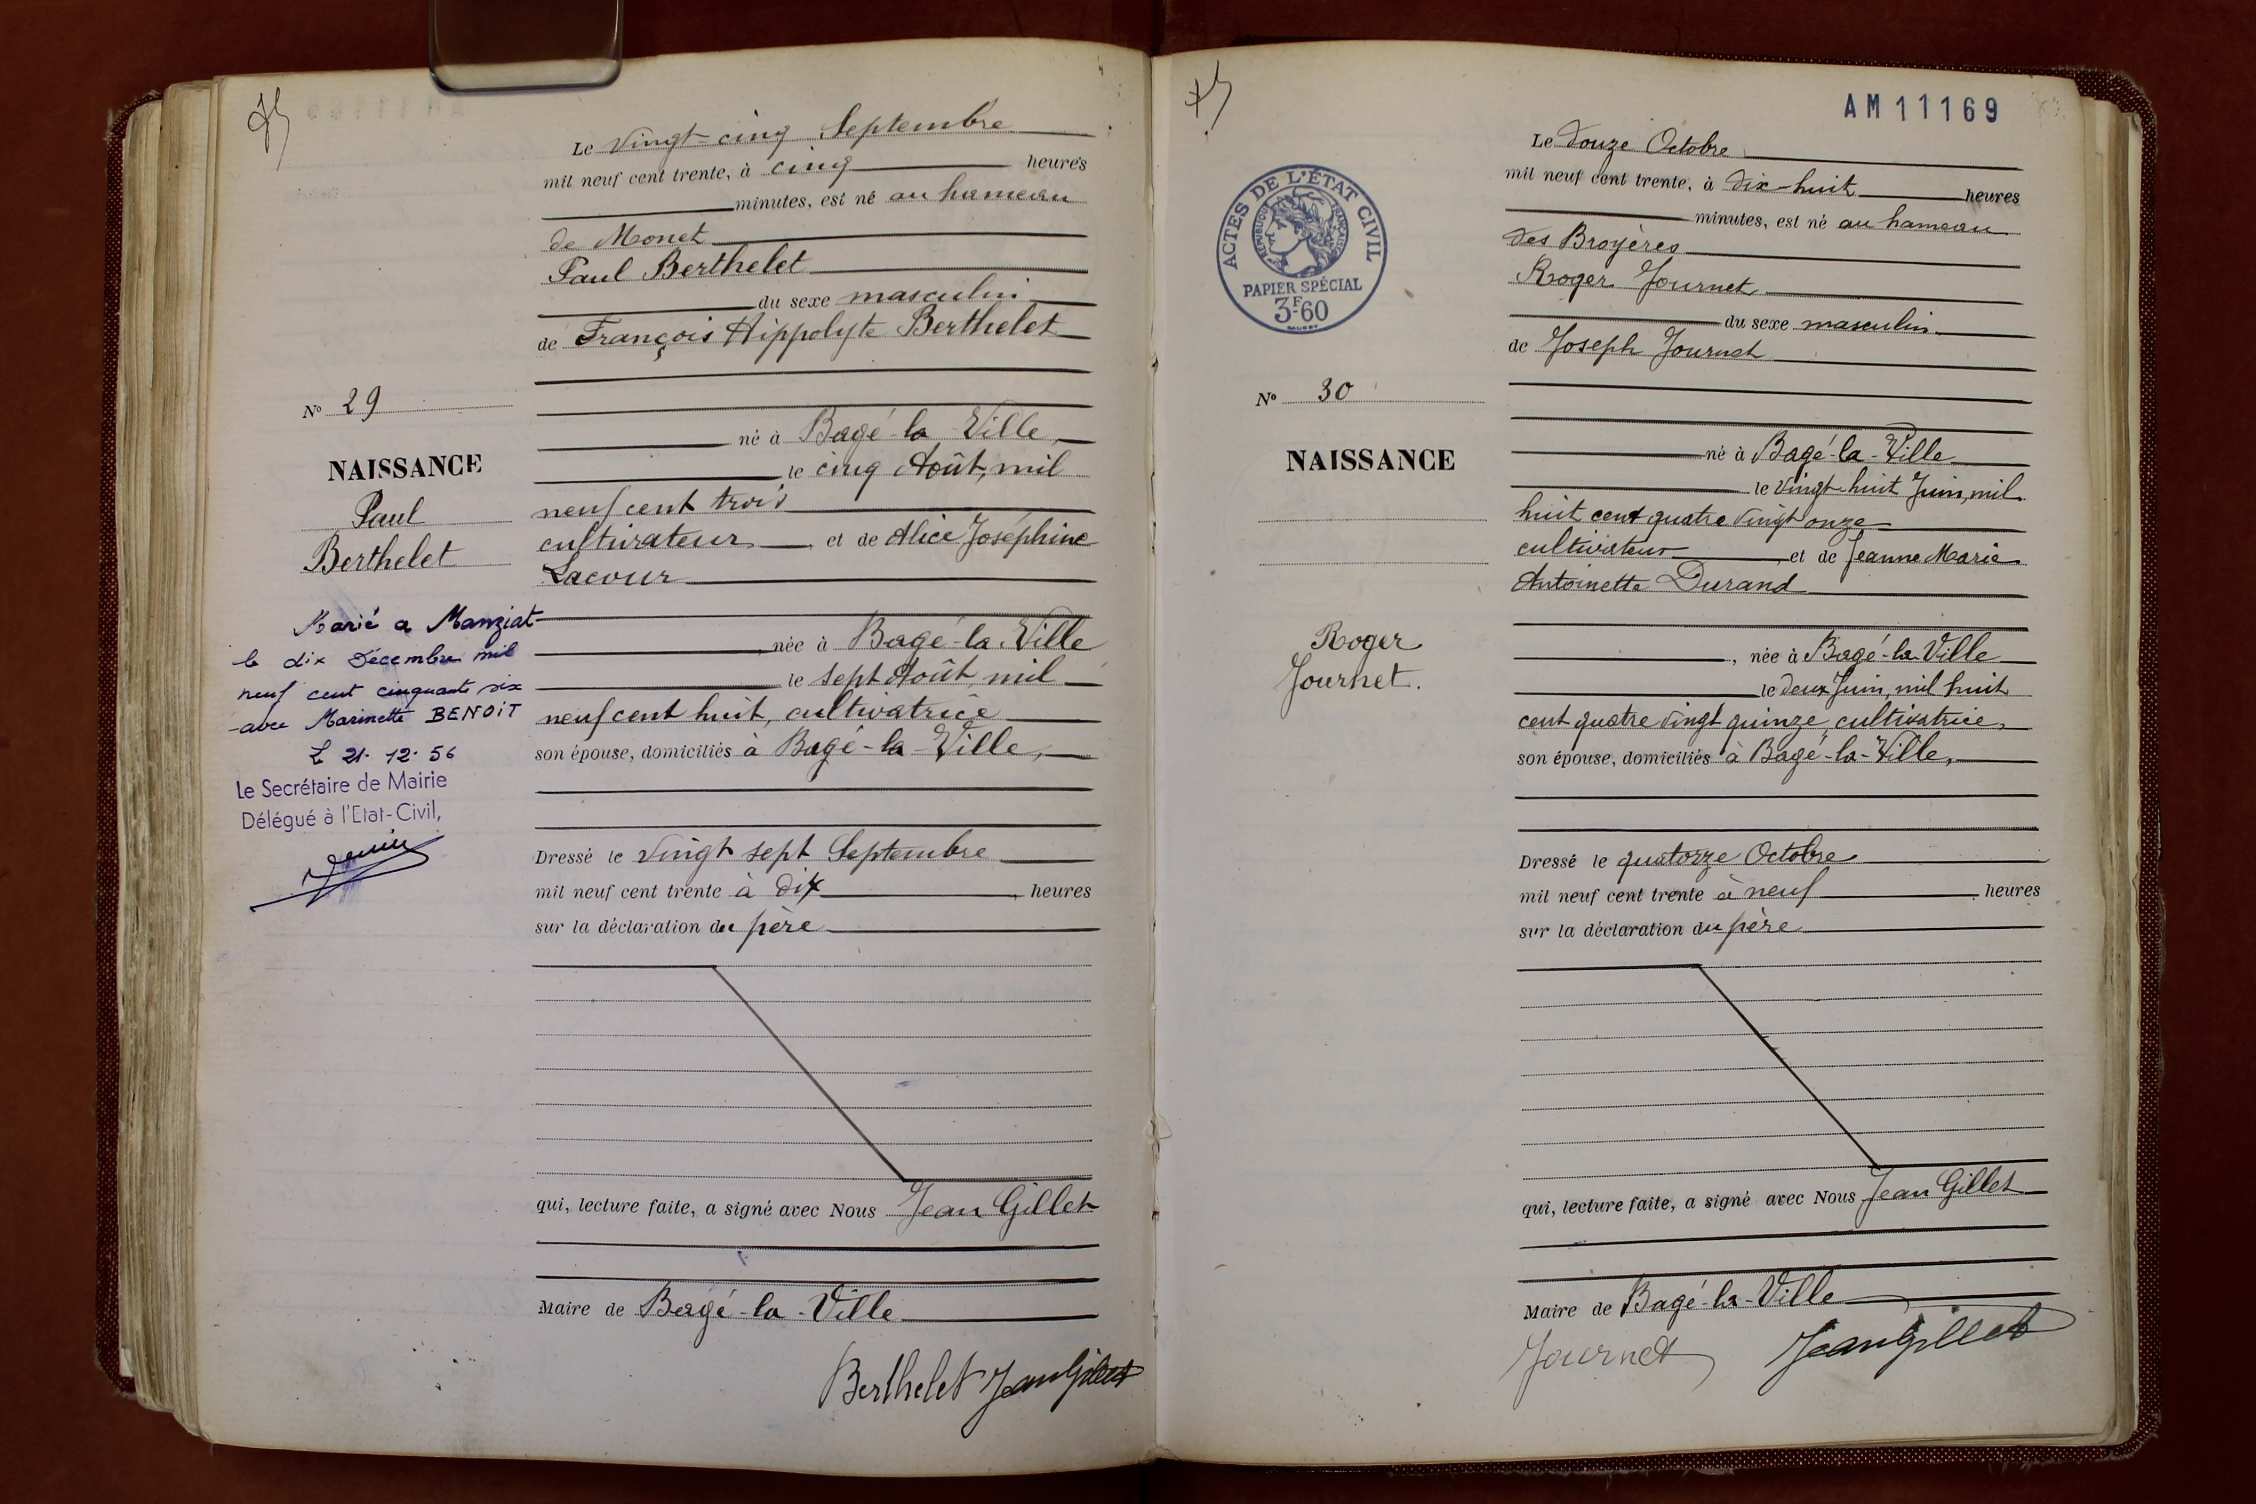 Le vingt-cinq Septembre
mil neuf cent trente, à cinq heures
minutes, est né au hameau
de Monet
Paul Berthelet
du sexe masculin
de François Hippolyte Berthelet
né à Bagé-la-Ville,
le cinq Août, mil
neuf cent trois
cultivateur, et de Alice Joséphine
Lacour
née à Bagé-la-Ville
le sept Août, mil
neuf cent huit, cultivatrice
son épouse, domiciliés à Bagé-la-Ville,
Dressé le vingt sept Septembre
mil neuf cent trente à dix heures
sur la déclaration du père
qui, lecture faite, a signé avec Nous Jean Gillet
Maire de Bagé-la-Ville
Berthelet Jean Gillet
N° 29
NAISSANCE
Paul
Berthelet
Marié a Manziat
le dix Décembre mil
neuf cent cinquante six
avec Marinette BENOIT
L 21.12.56
Le Secrétaire de Mairie
Délégué à l'Etat-Civil,
AM11169
ACTES DE L'ÉTAT CIVIL
RÉPUBLIQUE FRANÇAISE
PAPIER SPÉCIAL
3F60
N° 30
NAISSANCE
Roger
Journet.
Le douze Octobre
mil neuf cent trente, à dix-huit heures
minutes, est né au hameau
des Broyères
Roger Journet
du sexe masculin
de Joseph Journet
né à Bagé-la-Ville
le vingt-huit Juin, mil
huit cent quatre vingt onze
cultivateur, et de Jeanne Marie
Antoinette Durand
, née à Bagé-la-Ville
le deux Juin, mil huit
cent quatre vingt quinze, cultivatrice,
son épouse, domiciliés à Bagé-la-Ville,
Dressé le quatorze Octobre
mil neuf cent trente à neuf heures
sur la déclaration du père
qui, lecture faite, a signé avec Nous Jean Gillet
Maire de Bagé-la-Ville
Journet Jean Gillet